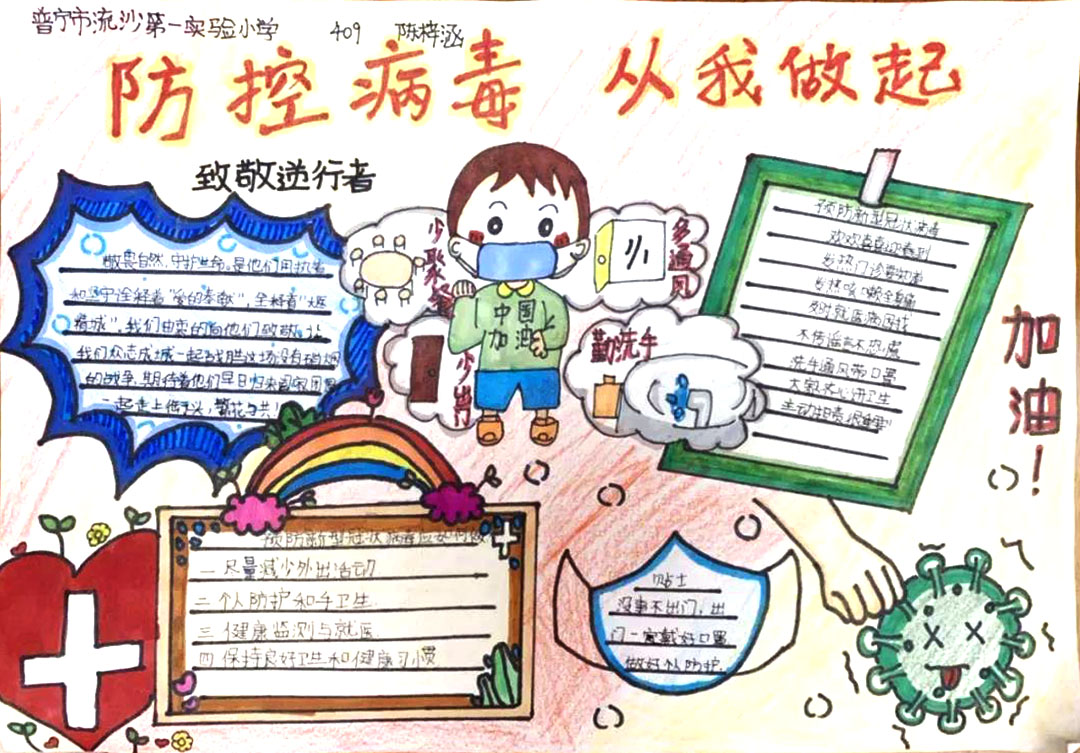 普宁市流沙第一实验小学 409 陈梓涵
防控病毒 从我做起
致敬逆行者
敬畏自然,守护生命,是他们用执着
和坚守诠释着"爱的奉献",全释着"大医
精诚",我们由衷的向他们致敬,让
我们众志成城一起战胜这场没有硝烟
的战争,期待着他们早日归来阖家团圆
一起走上街,繁花与共!
少聚餐
多通风
少出门
勤洗手
中国
加油
预防新型冠状病毒
欢欢喜喜迎春到
发热门诊要知
发热咳嗽全身痛
及时就医病因找
不传谣言不恐慌
洗手通风带口罩
大家关心讲卫生
主动担责很重要
加油!
预防新型冠状病毒应如何做
一 尺量减少外出活动
二 个人防护和手卫生
三 健康监测与就医
四 保持良好卫生和健康习惯
贴士
没事不出门,出
门一定戴好口罩
做好个人防护.